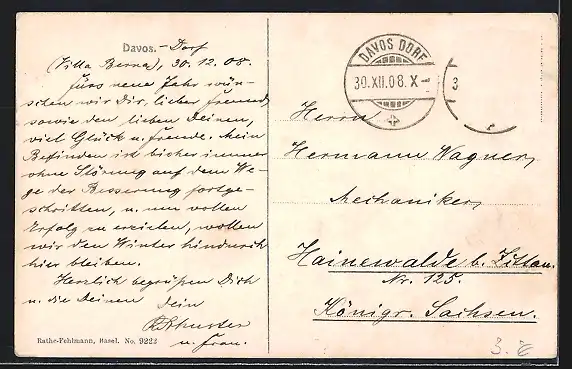 Davos.-Dorf
(Villa Berna), 30.12.08.
Fürs neue Jahr wün-
schen wir Dir, lieber Freund,
sowie den lieben Deinen,
viel Glück u. Freude. Mein
Befinden ist bisher immer
ohne Störung auf dem We-
ge der Besserung fortge-
schritten, u. um vollen
Erfolg zu erzielen, wollen
wir den Winter hindurch
hier bleiben.
Herzlich begrüßen Dich
u. die Deinen Dein
Schuster
u. Frau.
Rathe-Fehlmann, Basel. No. 9222
DAVOS DORF
30.XII.08.X-
3
Herrn
Hermann Wagner,
Mechaniker,
Hainewalde b. Zittau.
Nr. 125.
Königr. Sachsen.